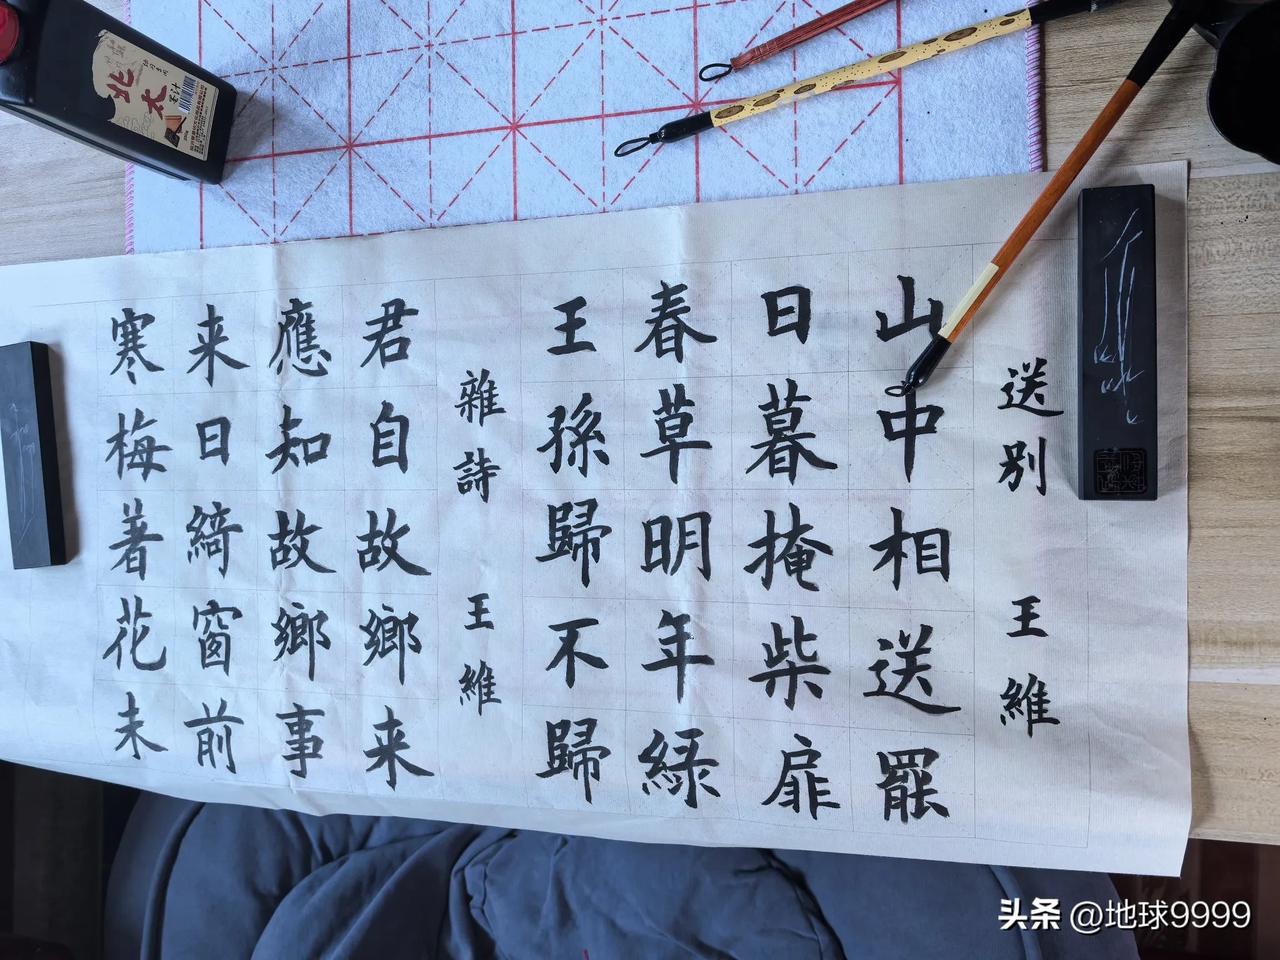 送别 王維
山中相送罷
日暮掩柴扉
春草明年緑
王孫歸不歸
雜詩 王維
君自故鄉来
應知故鄉事
来日綺窗前
寒梅著花未
北大
墨汁
头条 @地球9999